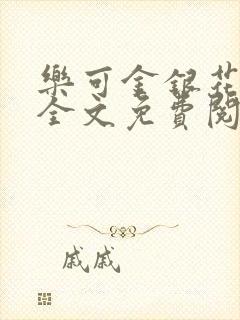 樂可金銀花
全文免費閱
戚戚